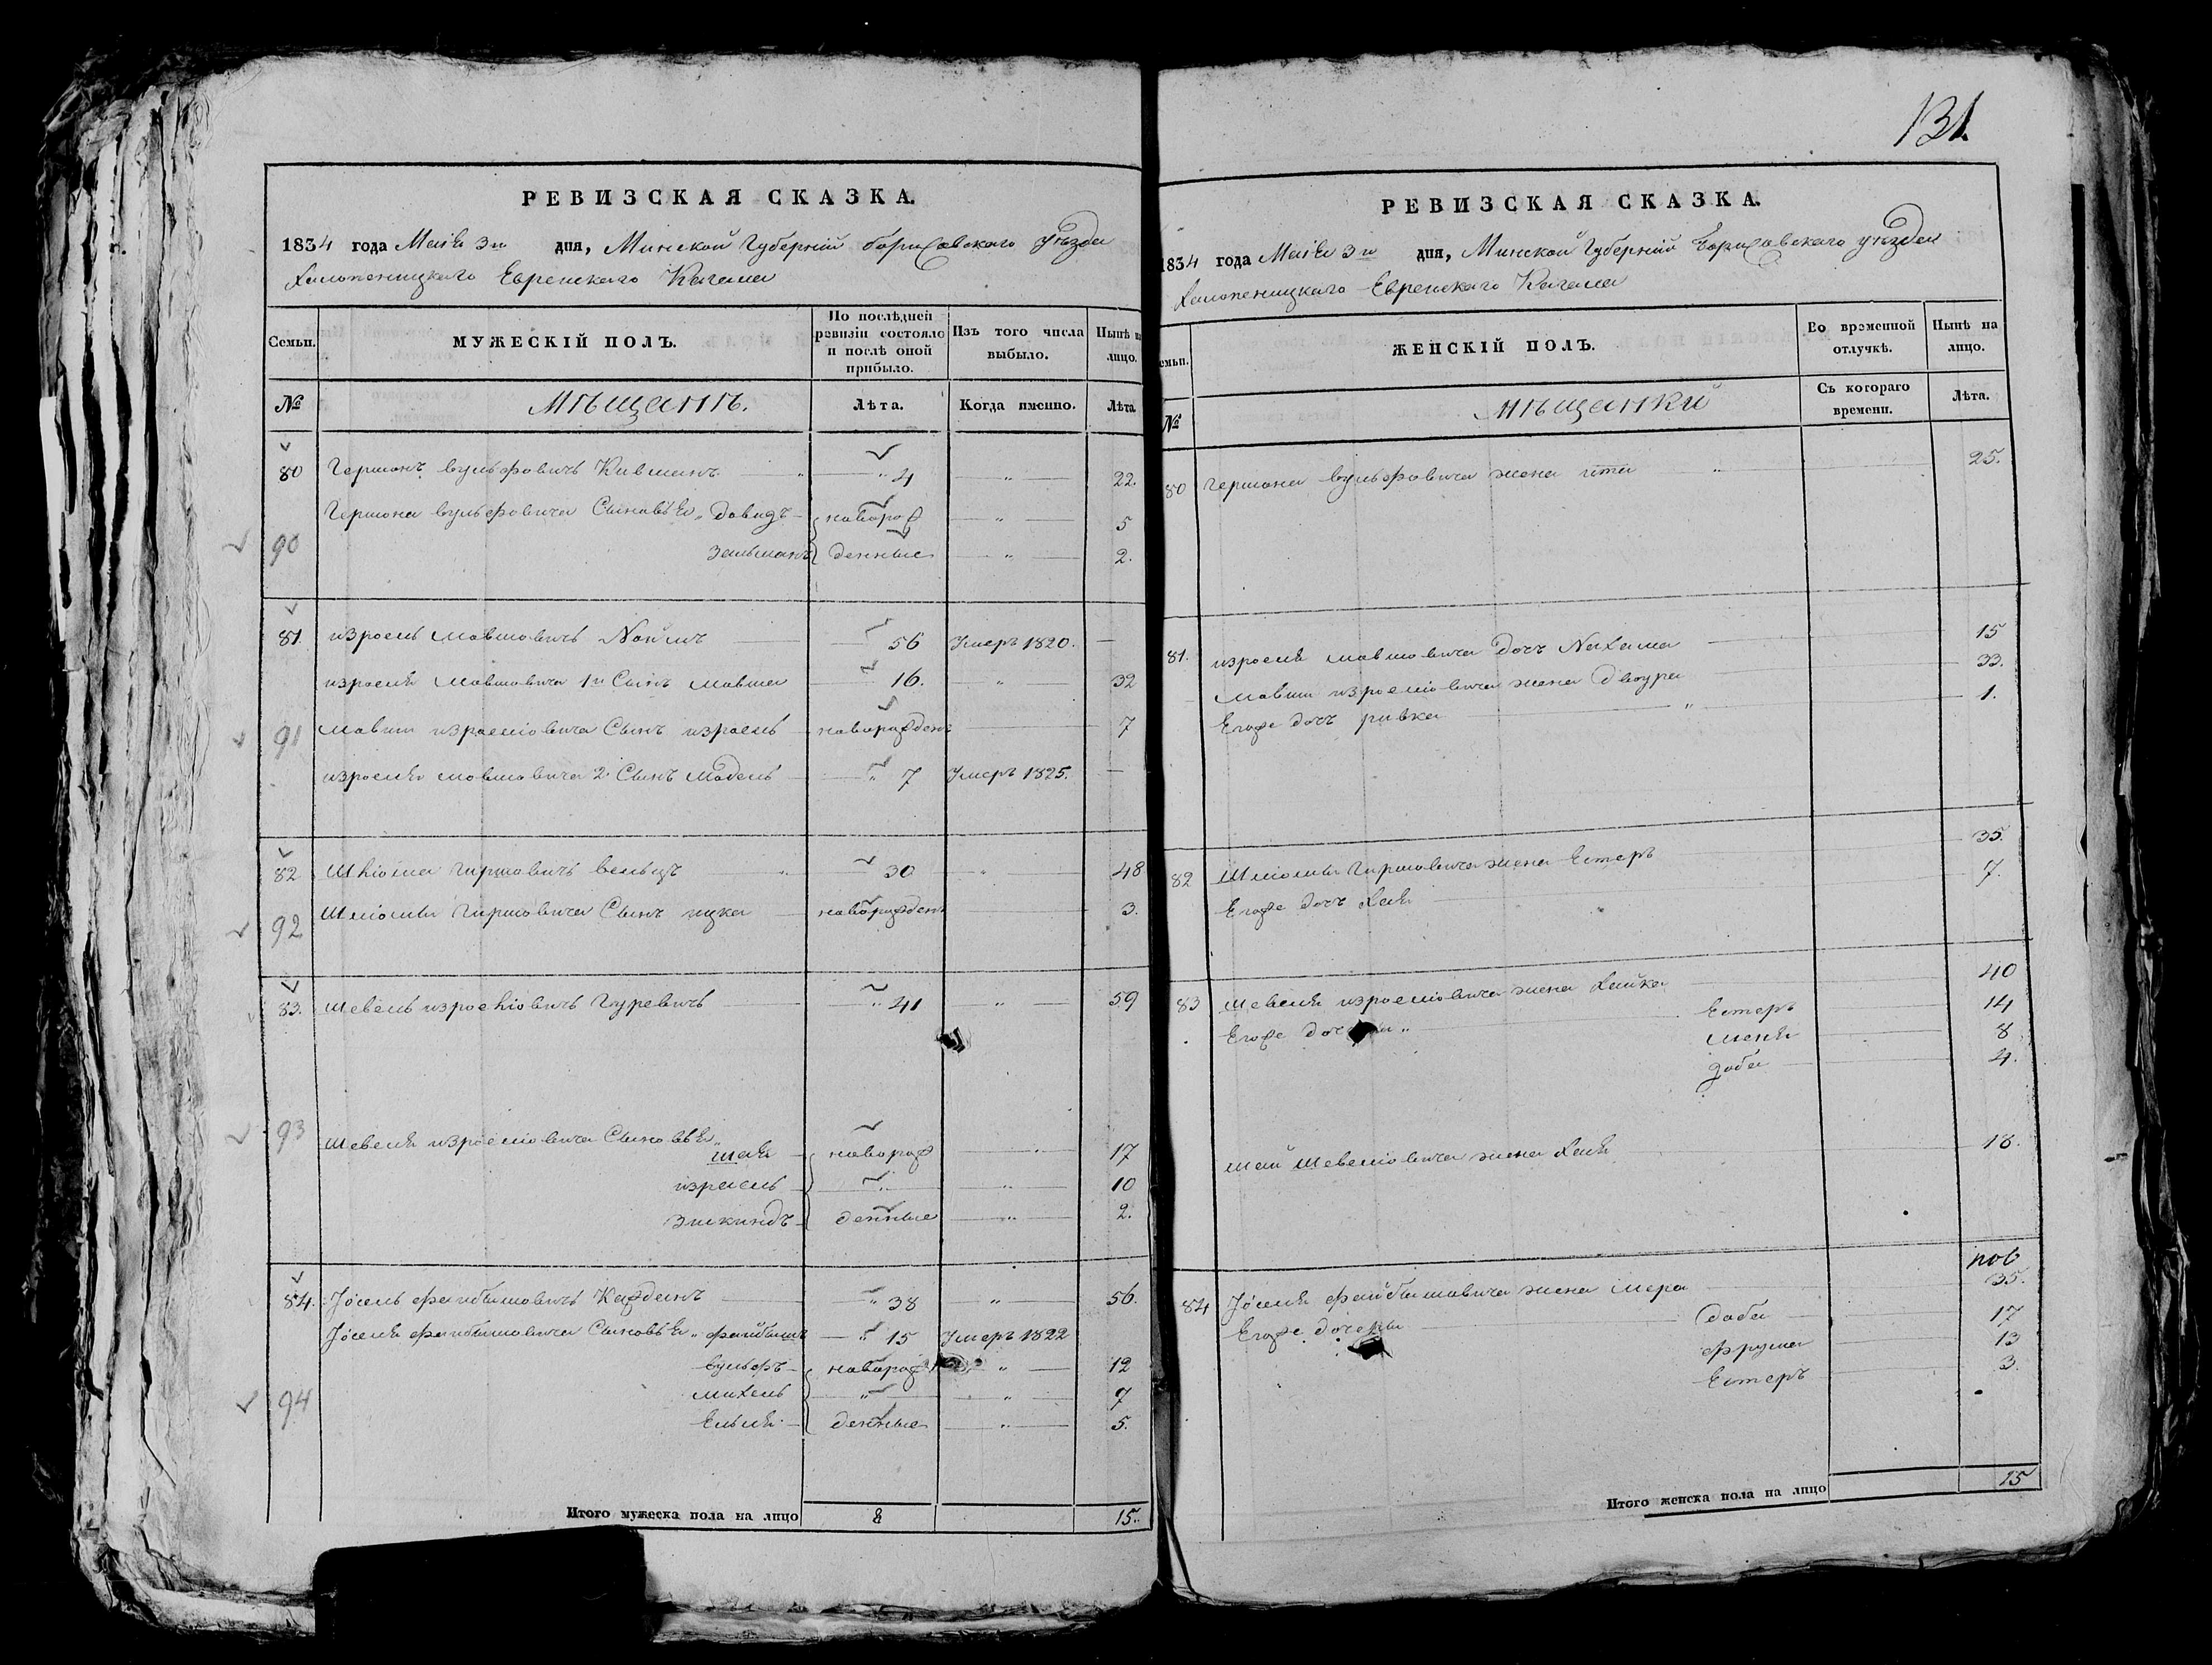 131.
РЕВИЗСКАЯ СКАЗКА.
1834 года Маія 3го дня, Минской Губерніи Борисовскаго уѣзда
Халопеницкаго Еврейскаго Кагала
Семьи.
МУЖЕСКІЙ ПОЛЪ.
По послѣдней ревизіи состояло и послѣ оной прибыло.
Изъ того числа выбыло.
Нынѣ на лицо.
№ Мѣщанъ. Лѣта. Когда именно. Лѣта
80 Гершонъ Вульфовичъ 4 22.
Гершона Вульфовича Сыновья Довидъ новорож 5
90
Зельманъ денные 2.
81 Израель Мовшовичъ 56 Умеръ 1820.
Израеля Мовшовича 1й Сынъ Мовша 16. 32
91 Мовши Израеліовича Сынъ Израель новорожден 7
Израеля Мовшовича 2 Сынъ 7 Умеръ 1825.
82 Шліома Гиршовичъ 30 48
92 Шліомы Гиршовича Сынъ Ицка новорожден 3.
83. Шевель Израеліовичъ Гуревичъ 41 59
93 Шевеля Израеліовича Сыновья
Шая новорож 17
Израель 10
Зискиндъ денные 2.
84. Іосель Файбишовичъ 38 56.
Іоселя Файбишовича Сыновья Файбишъ 15 Умеръ 1822
Вульфъ новорож 12
Михель 7
94 денные 5.
Итого мужеска пола на лицо 8 15.
РЕВИЗСКАЯ СКАЗКА.
1834 года Маія 3го дня, Минской Губерніи Борисовскаго уѣзда
Халопеницкаго Еврейскаго Кагала
емьи.
ЖЕНСКІЙ ПОЛЪ.
Во временной отлучкѣ.
Нынѣ на лицо.
№ Мѣщанки Съ котораго времени. Лѣта.
80 Гершона Вульфовича жена 25.
81. Израеля Мовшовича дочъ Нахама 15
Мовши Израеліовича жена Двоура 33.
Егоже дочъ Ривка 1.
82 Шліомы Гиршовича жена Естеръ 35.
Егоже дочъ Хая 7.
83 Шевеля Израеліовича жена Хайка 40
Егоже Естеръ 14
8
4.
Шаи Шевеліовича жена Хая 18.
пов
84 Іоселя Файбишовича жена Мера 35.
Егоже дочери Доба 17
Фрума 13
Естеръ 3.
Итого женска пола на лицо 15